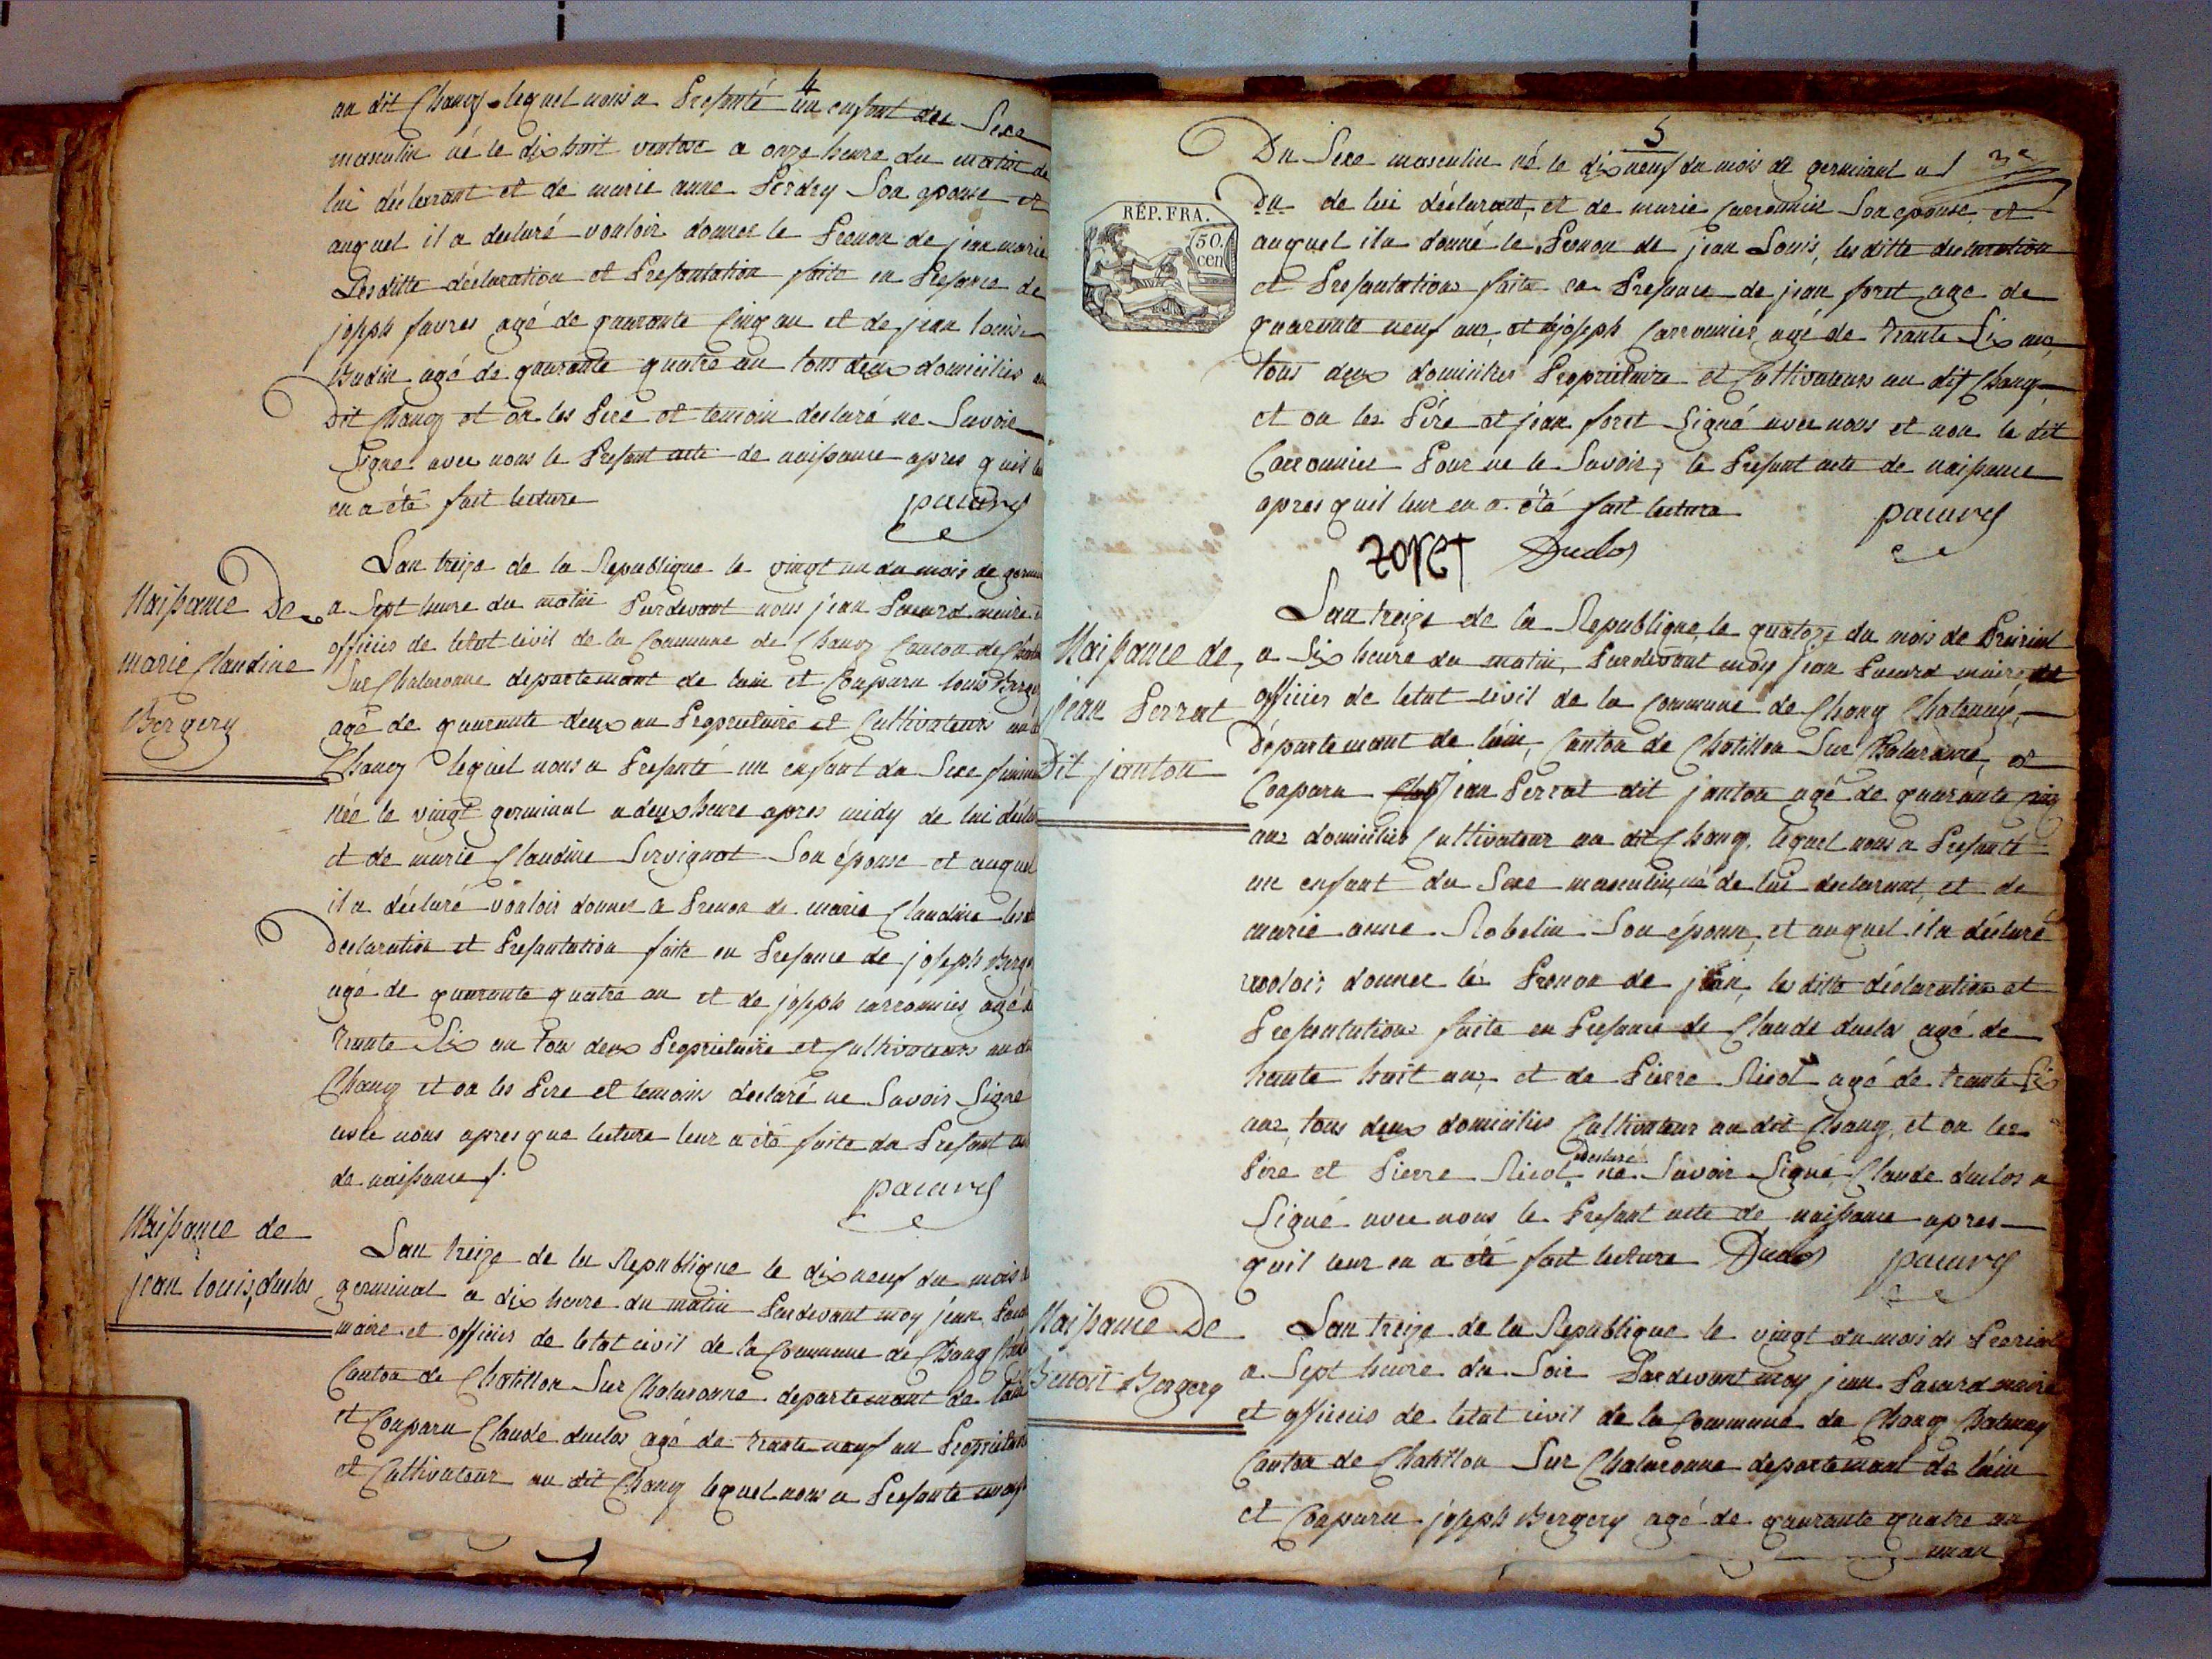 4
au dit Chanoz lequel nous a Presanté un enfant du Sexe
masculin né le dix huit ventose a onze heure du matin de
lui déclarant et de marie anne Perdry Son epouse et
auquel il a declaré vouloir donner le Prenon de jean marie
Lesditte déclaration et Presantation faite en Presance de
joseph favres agé de quarante Cinq an et de jean louis
Budin agé de quarante quatre an tous deux domicilies au
Dit Chanoz et on les Pere et temoin declaré ne Savoir
Signe avec nous le Presant acte de naissance apres quil leur
en a été fait lecture
pacard
Naissance De
marie Claudine
Bergery
Lan treize de la Republique le vingt un du mois de germinal
a Sept heure du matin Pardevant nous jean Pacard maire et
officier de letat civil de la Commune de Chanoz Canton de Chatillon
Sur Chalaronne departemant de lain et Conparu louis Bergery
agé de quarante deux an Proprietaire et Cultivateur au dit
Chanoz lequel nous a Presanté un enfant du Sexe feminin
née le vingt germinal a deux heure apres midy de lui declarant
et de marie Claudine Servignat Son épouse et auquel
il a déclaré vouloir donner le Prenon de marie Claudine lesditte
Declaration et Presantation faite en Presance de joseph Bergery
agé de quarante quatre an et de joseph carronnier agé de
trante Six an tou deux Proprietaire et Cultivateurs au dit
Chanoz et on les Pere et temoins declaré ne Savoir Signe
avec nous apres que lecture leur a été faite du Presant acte
de naissance /.
pacard
Naissance de
jean louis duclos
Lan treize de la Republique le dix neuf du mois de
germinal a dix heure du matin Pardevant moy jean Pacard
maire et officier de letat civil de la Commune de Chanoz Chatenay
Canton de Chatillon Sur Chalaronne departemant de lain
et Conparu Claude duclos agé de trante neuf an Proprietaire
et Cultivateur au dit Chanoz lequel nous a Presanté un enfant
5
3e
RÉP. FRA.
50.
cen
Du Sexe masculin né le dix neuf du mois de germinal a 1
Du de lui déclarant, et de marie Carronnier Son epouse, et
auquel il a donné le Prenon de jean Louis, les ditte declaration
et Presantation faite en Presance de jean foret age de
quarante neuf an, et de joseph Carronnier, agé de trante Six an,
tous deux domicilies Proprietaire et Cultivateurs au dit Chanoz
et on les Pére et jean foret Signé avec nous et non le dit
Carronnier Pour ne le Savoir, le Presant acte de naissance
apres quil leur en a été fait lecture
pacard
Duclos
Naissance de
jean Perrat
Dit janton
Lan treize de la Republique, le quatorze du mois de Prairial
a Six heure du matin, Pardevant moy jean Pacard maire, et
officier de letat civil de la Commune de Chanoz Chatenay,
Département de lain, Canton de Chatillon Sur Chalaronne, et
Conparu jean Perrat dit janton agé de quarante Cinq
ans domicilies Cultivateur au dit Chanoz, lequel nous a Presanté
un enfant du Sexe masculin, né de lui declarant, et de
marie anne Robelin Son épouse, et auquel il a déclaré
vouloir donner lé Prenon de jean, les ditte déclaration et
Presantation faite en Presance de Claude duclos agé de
trante huit an, et de Pierre Nicol agé de trante Six
ans, tous deux domicilies Cultivateur au dit Chanoz, et on les
Pére et Pierre Nicol declaré ne Savoir Signé, Claude duclos a
Signé avec nous le Presant acte de naissance apres
quil leur en a été fait lecture Duclos pacard
Naissance De
Benoit Bergery
Lan treize de la Republique le vingt du mois de Prerial
a Sept heure du Soir Pardevant moy jean Pacard maire
et officier de letat civil de la Commune de Chanoz Chatenay
Canton de Chatillon Sur Chalaronne departemant de lain
et Conparu joseph Bergery agé de quarante quatre an